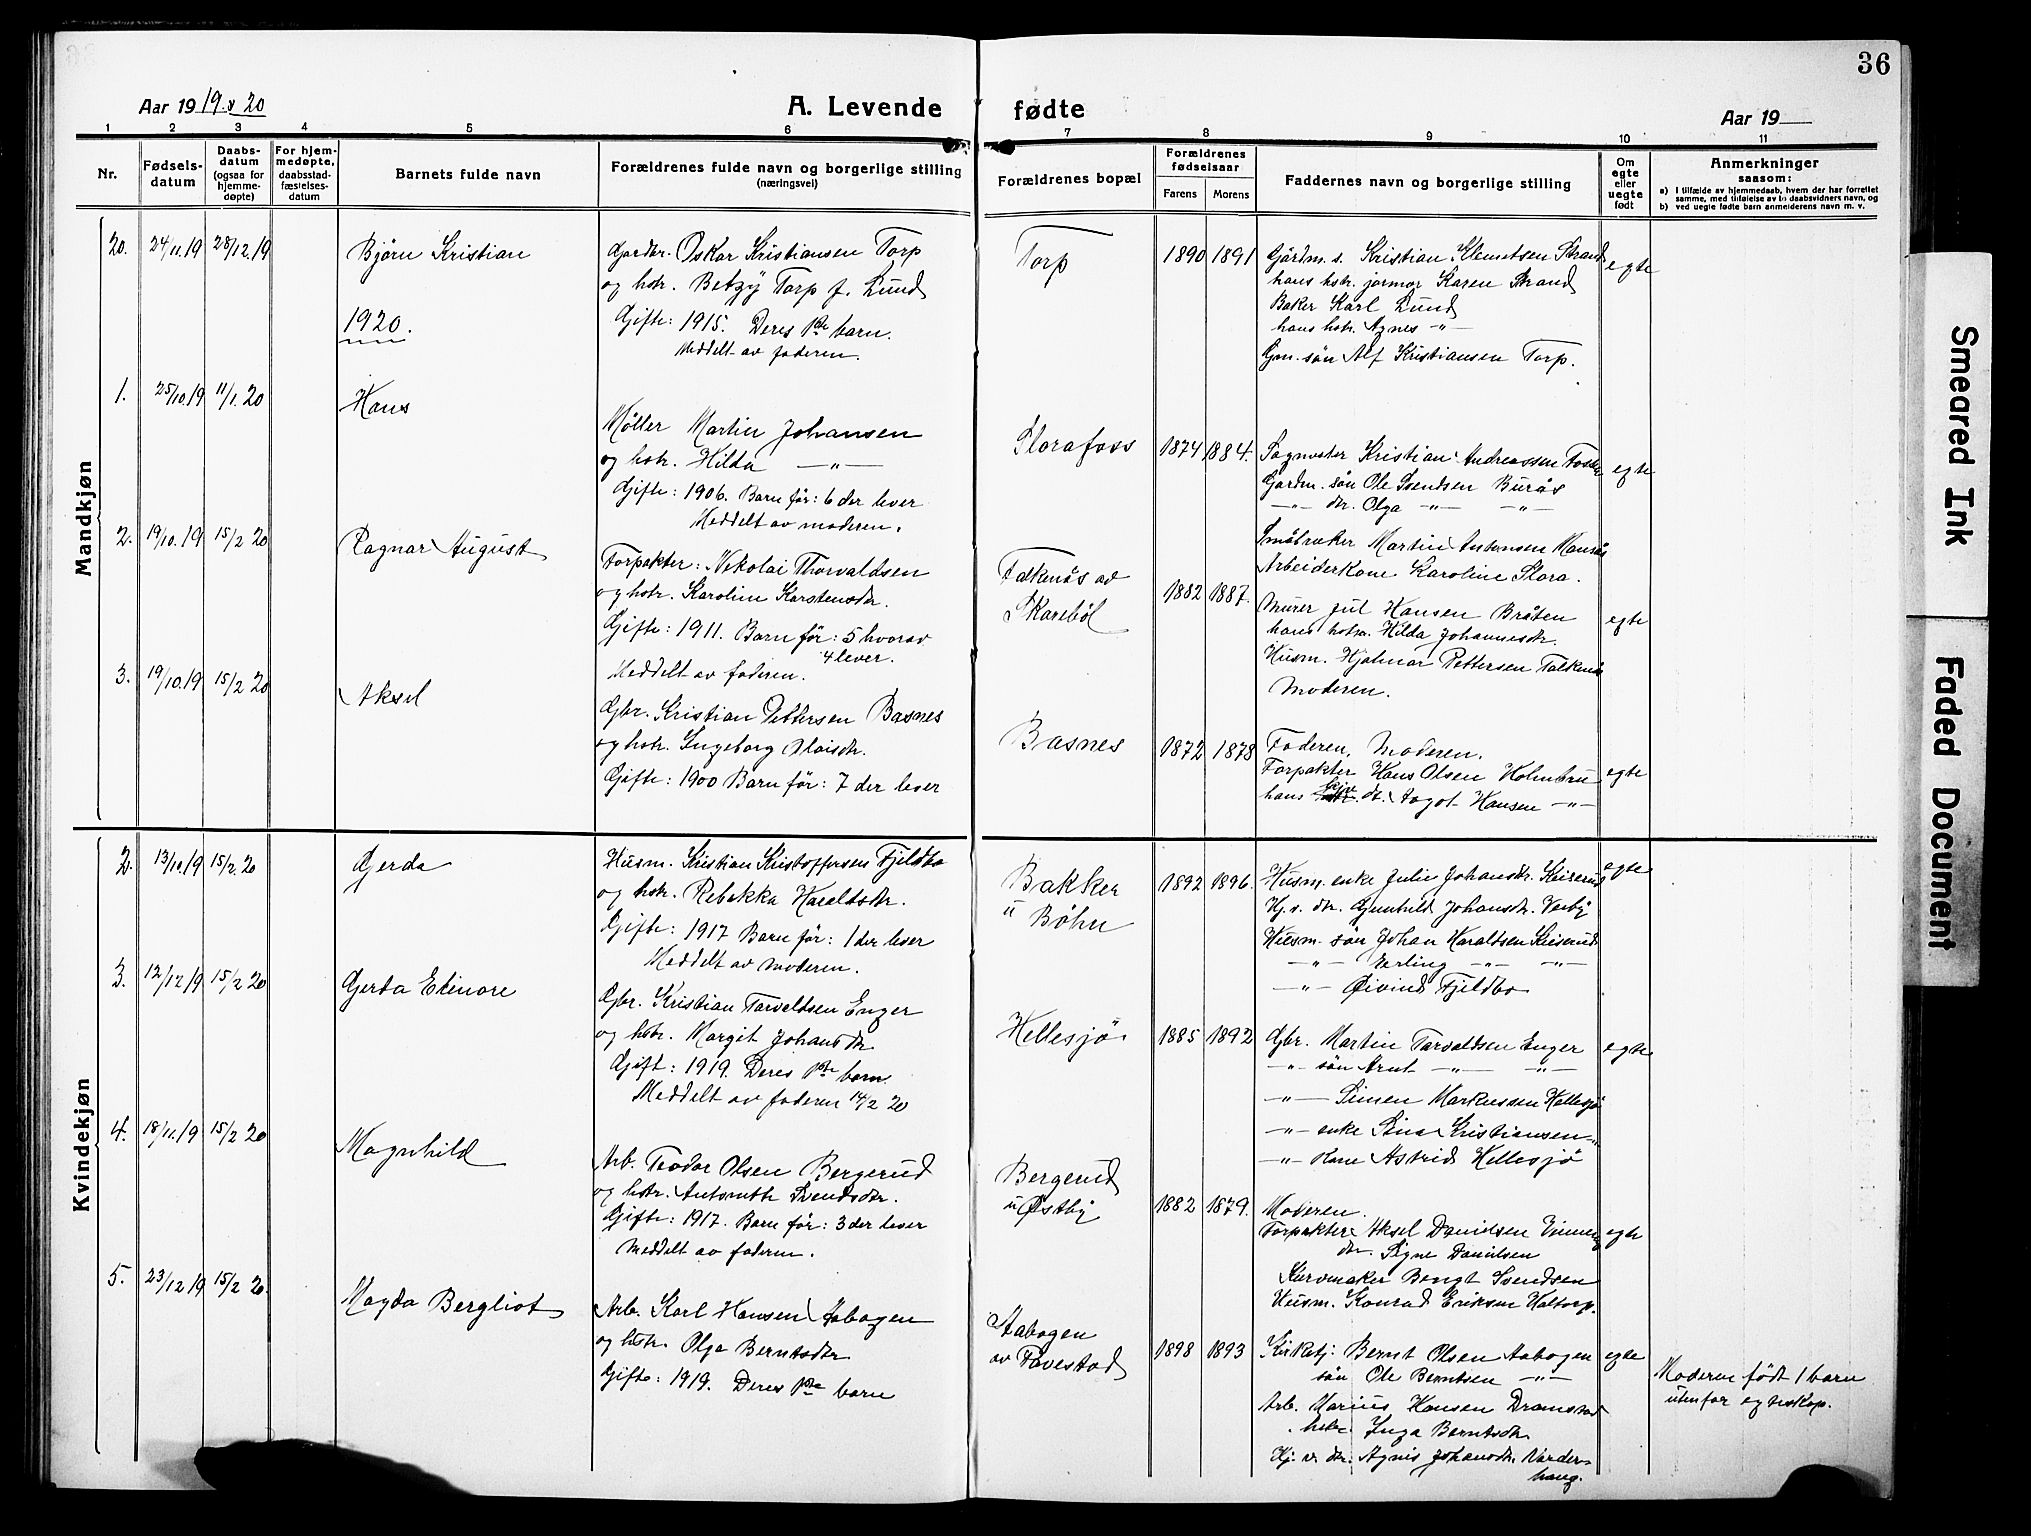 36
Aar 19 19 & 20
A. Levende fødte
Aar 19
1 2 3 4 5 6 7 8 9 10 11
Nr.
Fødsels-
datum
Daabs-
datum
(ogsaa for
hjemme-
døpte)
For hjem-
medøpte,
daabsstad-
fæstelses-
datum
Barnets fulde navn
Forældrenes fulde navn og borgerlige stilling
(næringsvei)
Forældrenes bopæl
Forældrenes
fødselsaar
Farens Morens
Faddernes navn og borgerlige stilling
Om
egte
eller
uegte
født
Anmerkninger
saasom:
a) I tilfælde av hjemmedaab, hvem der har forrettet
samme, med tilføielse av to daabsvidners navn, og
b) ved uegte fødte barn anmelderens navn m. v.
Mandkjøn
20. 24/11.19 28/12.19 Bjørn Kristian
1920.
Gardbr. Oskar Kristiansen Torp
og hstr. Betzy Torp f. Lund
Gifte: 1915. Deres 1ste barn.
Meddelt av faderen.
Torp 1890 1891
Gårdm. s. Kristian Klemetsen Strand
hans hstr. jormor Karen Strand
Baker Karl Lund
hans hstr. Agnes -"-
Gm. søn Alf Kristiansen Torp.
egte
1. 25/10.19 11/1.20 Hans
Møller Martin Johansen
og hstr. Hilda -"-
Gifte: 1906. Barn før: 6 der lever
Meddelt av moderen.
Florafoss 1874 1884.
Sagmester Kristian Andreassen Fosser
Gardm. søn Ole Svendsen Burås
-"- dtr. Olga -"- -"-
Småbruker Martin Antonsen
Arbeiderkone Karoline Flora.
egte
2. 19/10.19 15/2 20 Ragnar August
Forpakter: Nikolai Thorvaldsen
og hstr. Karoline Karstensdtr.
Gifte: 1911. Barn før: 5 hvorav
4 lever.
Meddelt av faderen.
Falkenås av
Skarebøl
1882 1887.
Murer Jul Hansen Bråten
hans hstr. Hilda Johannesdtr
Husm. Hjalmar Pettersen Falkenås
Moderen.
egte
3. 19/10.19 15/2 20 Aksel
Gbr. Kristian Pettersen Basnes
og hstr. Ingeborg Olaisdtr.
Gifte: 1900 Barn før: 7 der lever
Basnes 1872 1878
Faderen, Moderen.
Forpakter Hans Olsen Kolnbru
hans dt. Aagot Hansen -"-
egte
Kvindekjøn
2. 13/10.19 15/2.20 Gerda
Husm. Kristian Kristoffersen Fjeldbo
og hstr. Rebekka Haraldsdtr.
Gifte: 1917 Barn før: 1 der lever
Meddelt av moderen.
Bakker
u Bøhn
1892 1896.
Husm. enke Julie Johansdtr. Keiserud
Hj. s. dtr. Gunhild Johansdtr. Verby
Husm. søn Johan Haraldsen Keiserud
-"- Erling -"- -"-
-"- Øivind Fjeldbo
egte
3. 12/12 19 15/2 20 Gerda Elinore
Gbr. Kristian Tarveldsen Enger
og hstr. Margit Johansdtr
Gift: 1919. Deres 1ste barn
Meddelt av faderen 14/2 20
Hellesjø 1885 1892
Gbr. Martin Tarvaldsen Enger
-"- søn Arnt -"- -"-
-"- Simen Markussen Hellesjø
-"- enke Lina Kristiansen -"-
-"- Kone Astrid Hellesjø
egte
4. 18/11.19 15/2 20 Magnhild
Arb. Teodor Olsen Bergerud
og hstr. Antonette Svendsdtr.
Gifte: 1917. Barn før: 3 der lever
Meddelt av faderen.
Bergerud
u Østby
1882 1879.
Moderen.
Forpakter Aksel Danielsen
dtr. Signe Danielsen
Kurvmaker Bengt Svendsen
Husm. Konrad Eriksen Haltorp.
egte
5. 23/12 19 15/2 20. Magda Bergliot
Arb. Karl Hansen Aabogen
og hstr. Olga Berntsdtr
Gifte: 1919. Deres 1ste barn
Aabogen
av Tavestad
1898 1893
Kirketj: Bernt Olsen Aabogen
søn Ole Berntsen -"-
Arb. Marius Hansen Dramstad
hstr. Inga Berntsdtr.
Hj. v. dtr. Agnis Johansdtr. Varder-
haug.
egte
Moderen født 1 barn
utenfor egteskap.
Smeared Ink
Faded Document